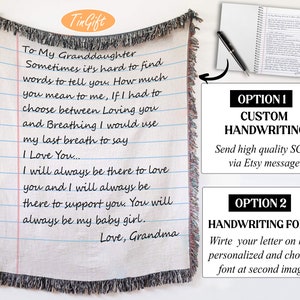 TinGift
To My Granddaughter
Sometimes it's hard to find
words to tell you. How much
you mean to me, If I had to
choose between Loving you
and Breathing I would use
my last breath to say
I Love You...
I will always be there to love
you and I will always be
there to support you. You will
always be my baby girl.
Love, Grandma
OPTION 1
CUSTOM
HANDWRITING
Send high quality SC
via Etsy message
OPTION 2
HANDWRITING FO
Wirte your letter on
personalized and cho
font at second imag